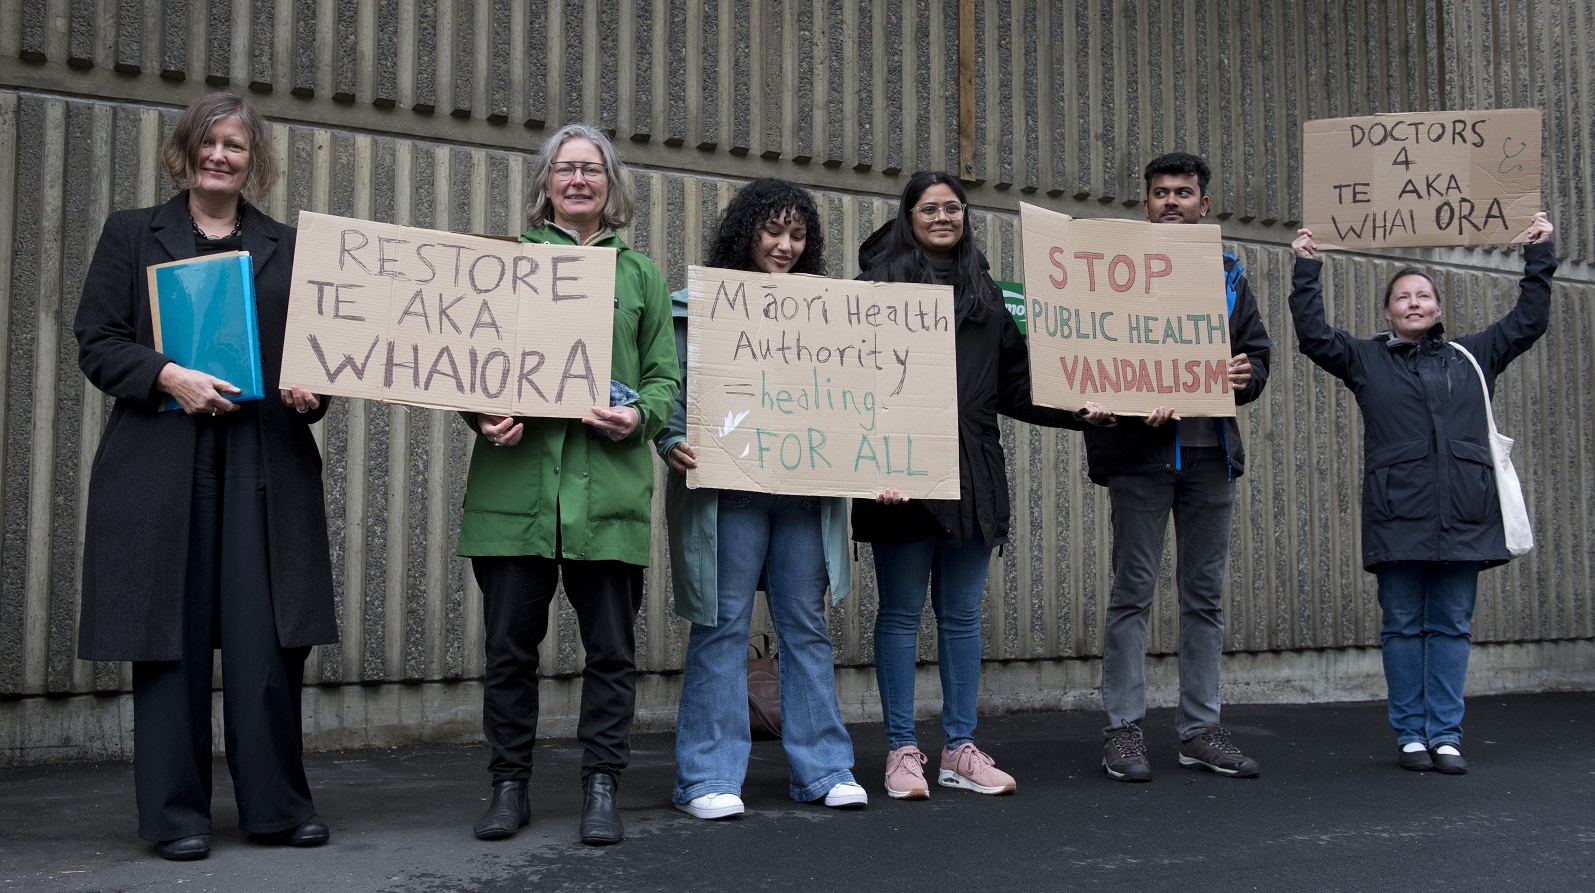 RESTORE
TE AKA
WHAIORA
Māori Health
Authority
= healing
FOR ALL
STOP
PUBLIC HEALTH
VANDALISM
DOCTORS
4
TE AKA
WHAI ORA